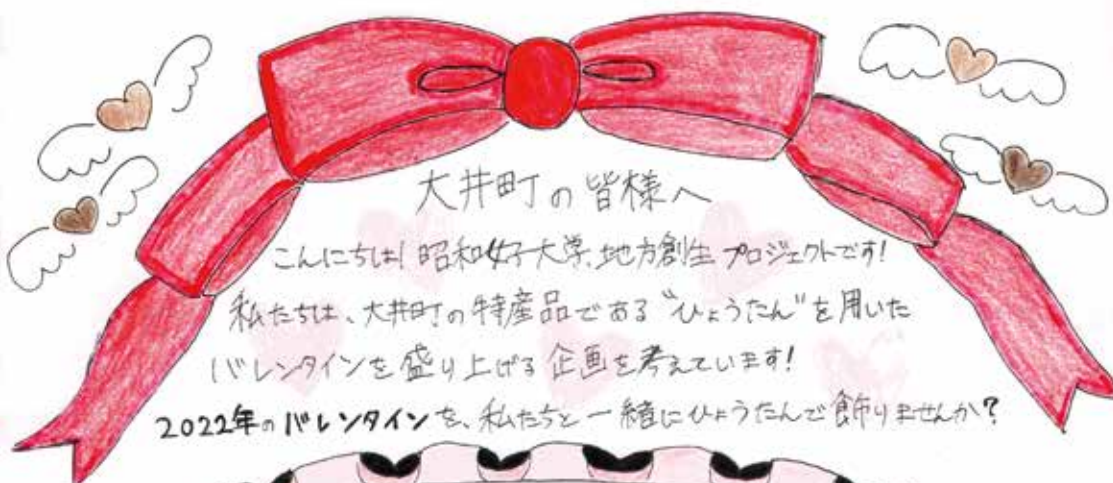 大井町の皆様へ
こんにちは!昭和女子大学、地方創生プロジェクトです!
私たちは、大井町の特産品である"ひょうたん"を用いた
バレンタインを盛り上げる企画を考えています!
2022年のバレンタインを、私たちと一緒にひょうたんで飾りませんか?